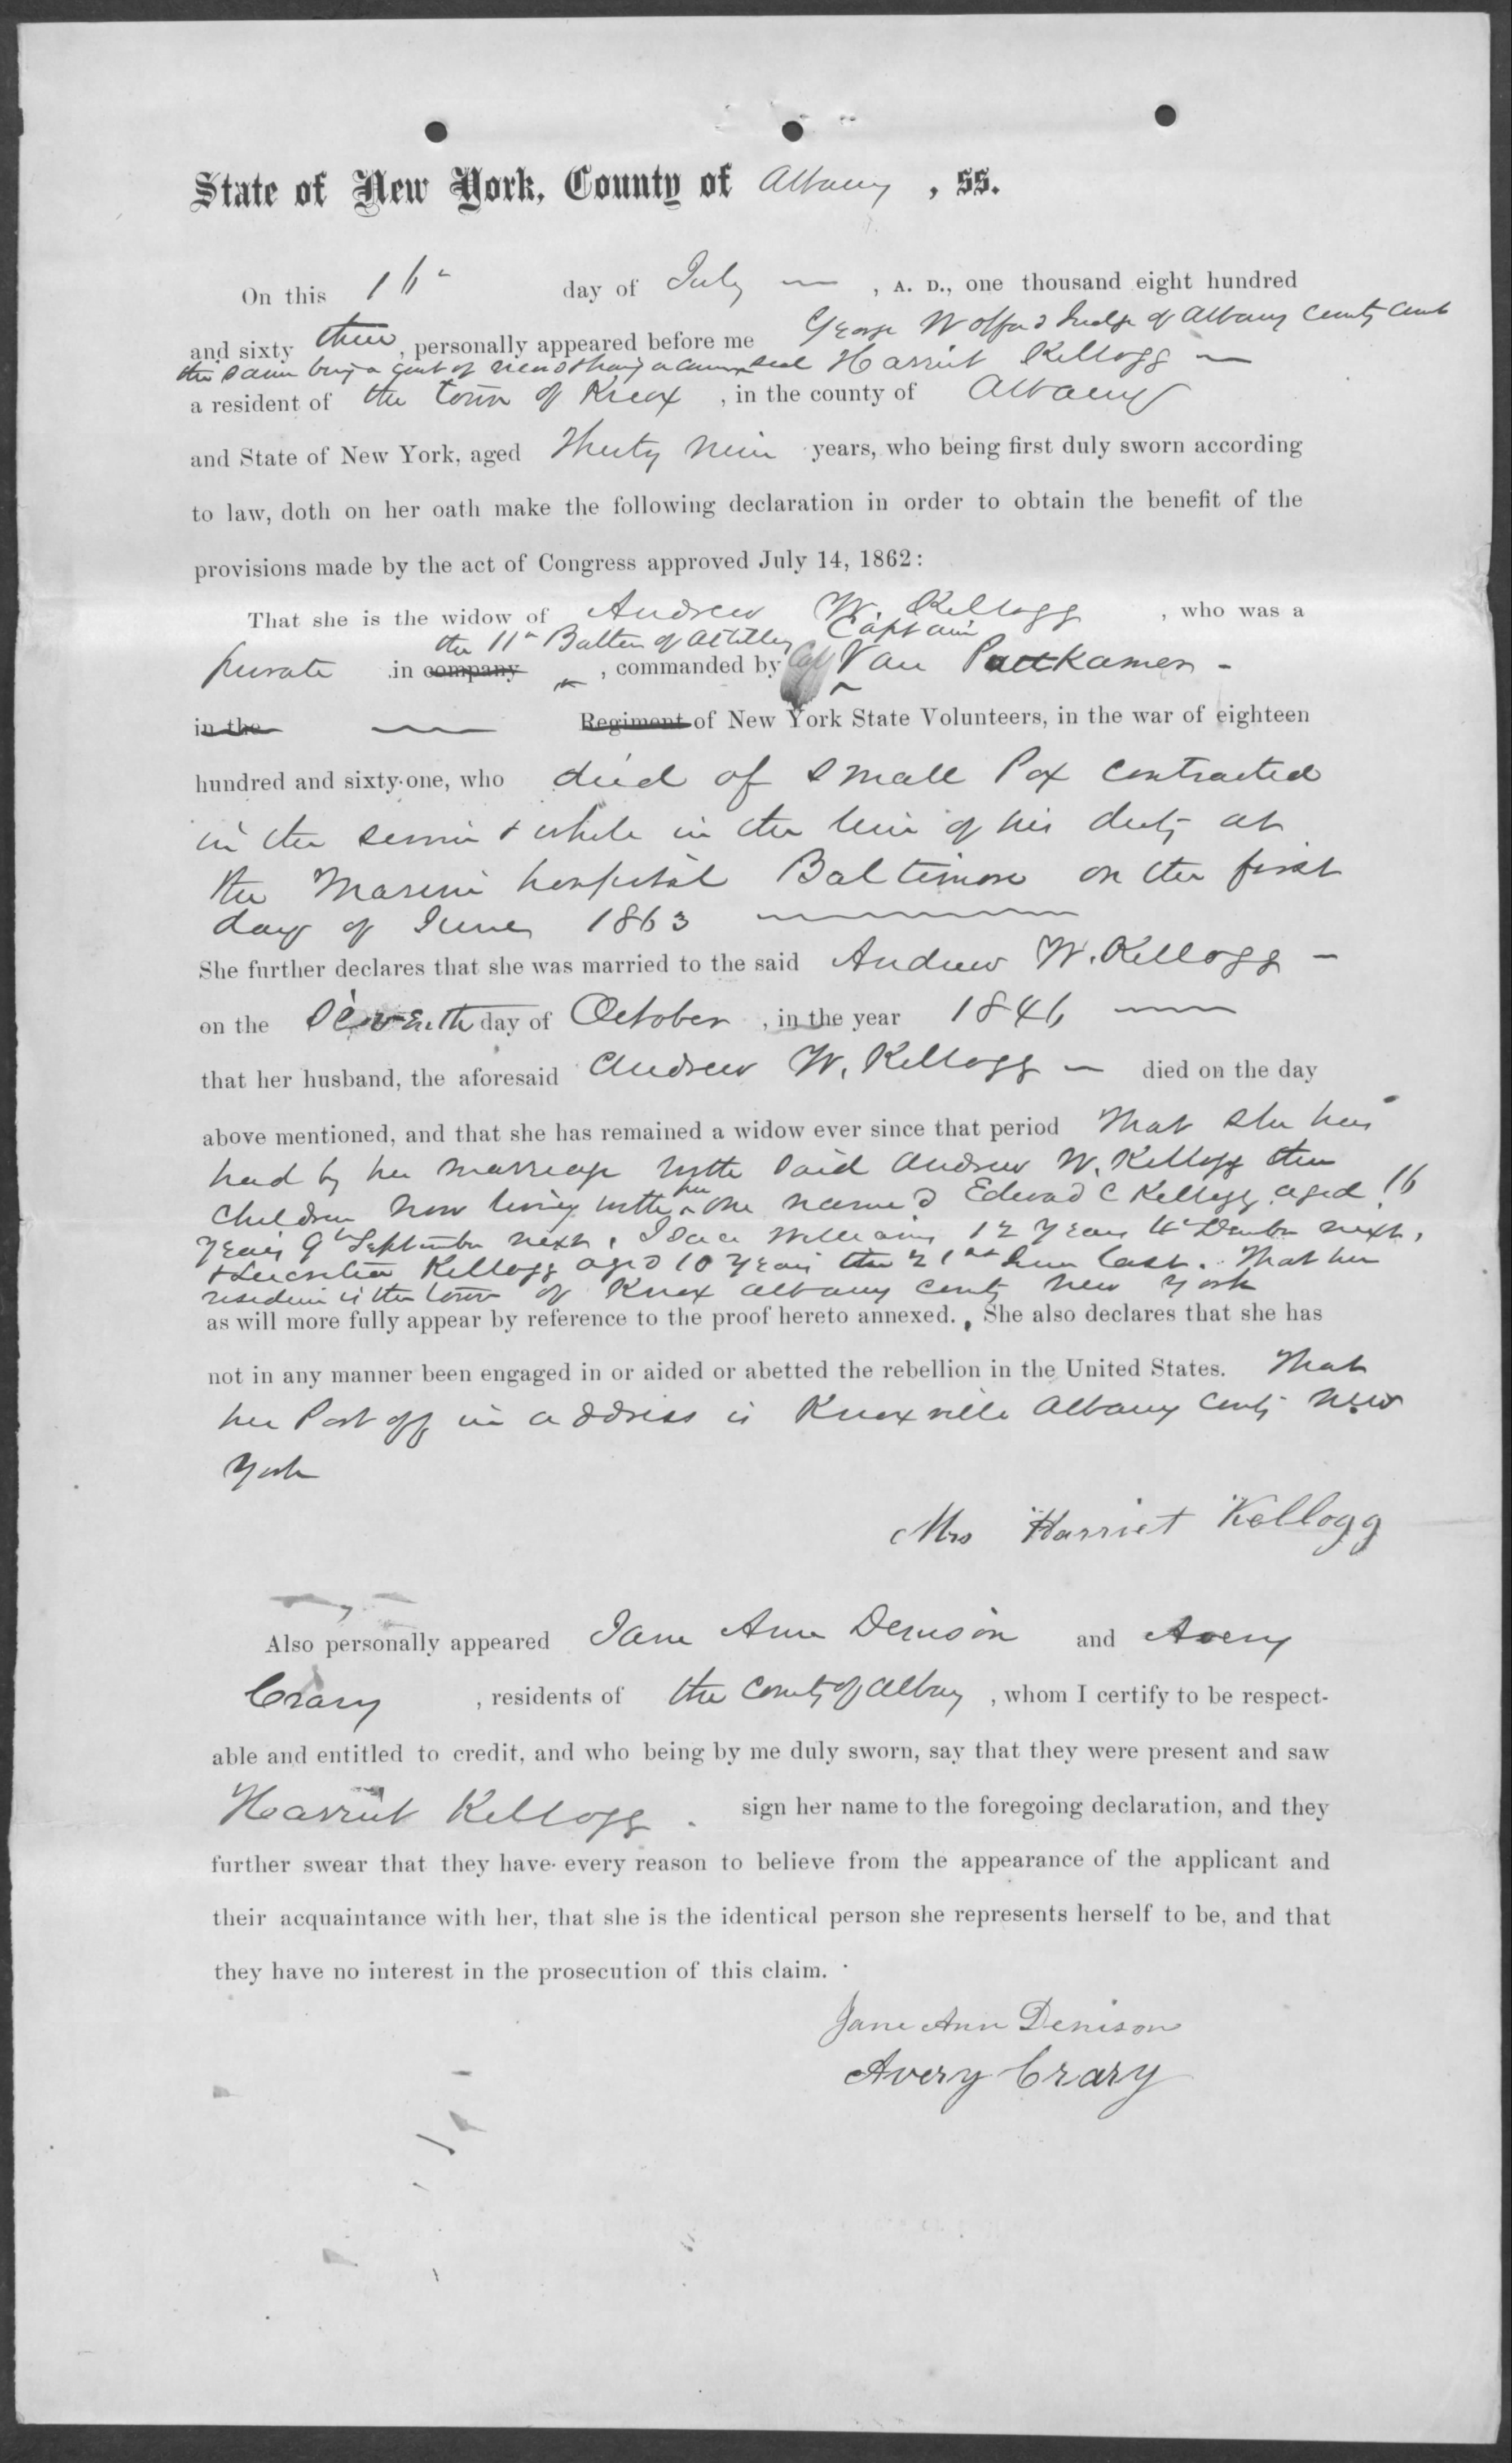 State of New York, County of Albany, ss.
On this 16th day of July, A. D., one thousand eight hundred
and sixty three, personally appeared before me George Wolford Judge of Albany County Court
the same being a Court of record & having a common seal Harriet Kellogg
a resident of the town of Knox, in the county of Albany
and State of New York, aged Thirty nine years, who being first duly sworn according
to law, doth on her oath make the following declaration in order to obtain the benefit of the
provisions made by the act of Congress approved July 14, 1862:
That she is the widow of Andrew W. Kellogg, who was a
the 11th Battery of Artillery Captain
private in company, commanded by Van Puttkamer
in the Regiment of New York State Volunteers, in the war of eighteen
hundred and sixty-one, who died of Small Pox contracted
in the service & while in the line of his duty at
the Marine hospital Baltimore on the first
day of June 1863
She further declares that she was married to the said Andrew W. Kellogg
on the Seventh day of October, in the year 1846
that her husband, the aforesaid Andrew W. Kellogg died on the day
above mentioned, and that she has remained a widow ever since that period That she has
had by her marriage with said Andrew W. Kellogg three
children now living with her one named Edward C Kellogg aged 16
years 9th September next, Isaac William 12 years next,
& Lucretia Kellogg aged 10 years the 21st June last. That her
residence is the town of Knox Albany County New York
as will more fully appear by reference to the proof hereto annexed. She also declares that she has
not in any manner been engaged in or aided or abetted the rebellion in the United States. That
her Post office address is Knoxville Albany County New
York
Mrs Harriet Kellogg
Also personally appeared Jane Ann Denison and Avery
Crary, residents of the County of Albany, whom I certify to be respect-
able and entitled to credit, and who being by me duly sworn, say that they were present and saw
Harriet Kellogg. sign her name to the foregoing declaration, and they
further swear that they have every reason to believe from the appearance of the applicant and
their acquaintance with her, that she is the identical person she represents herself to be, and that
they have no interest in the prosecution of this claim.
Jane Ann Denison
Avery Crary